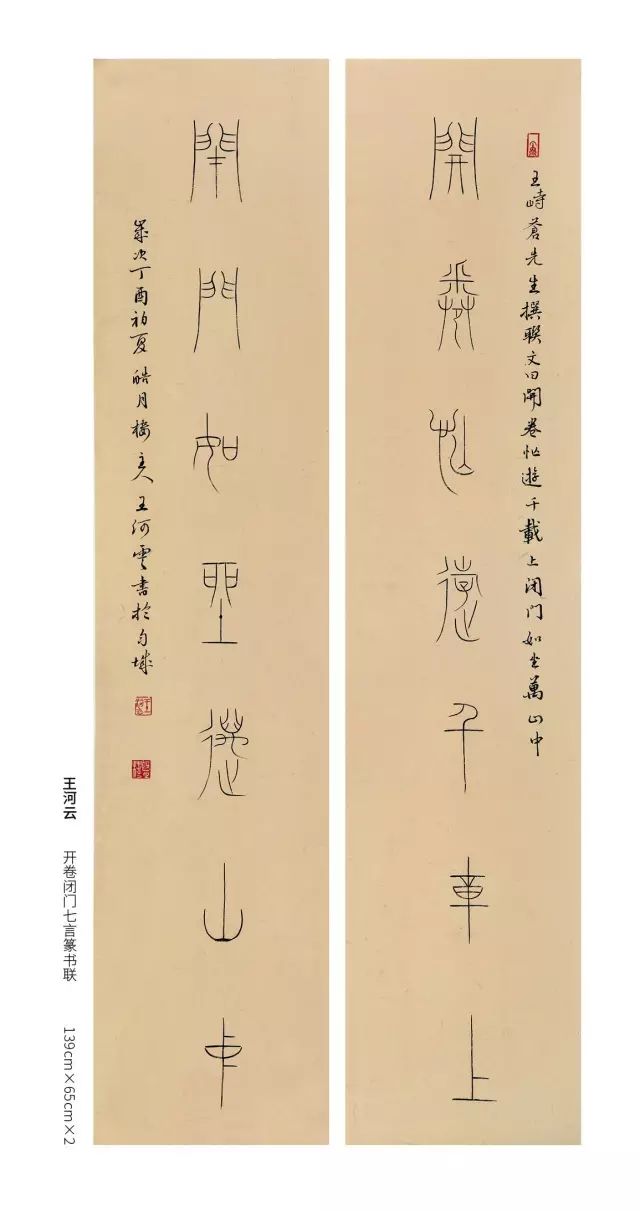 王峙蒼先生撰聯文曰開卷遊千載上闭门如坐萬山中
開卷遊千載上
閉門如坐萬山中
歲次丁酉初夏皓月樓主人王河雲書於城
王河云 开卷闭门七言篆书联 139cm×65cm×2